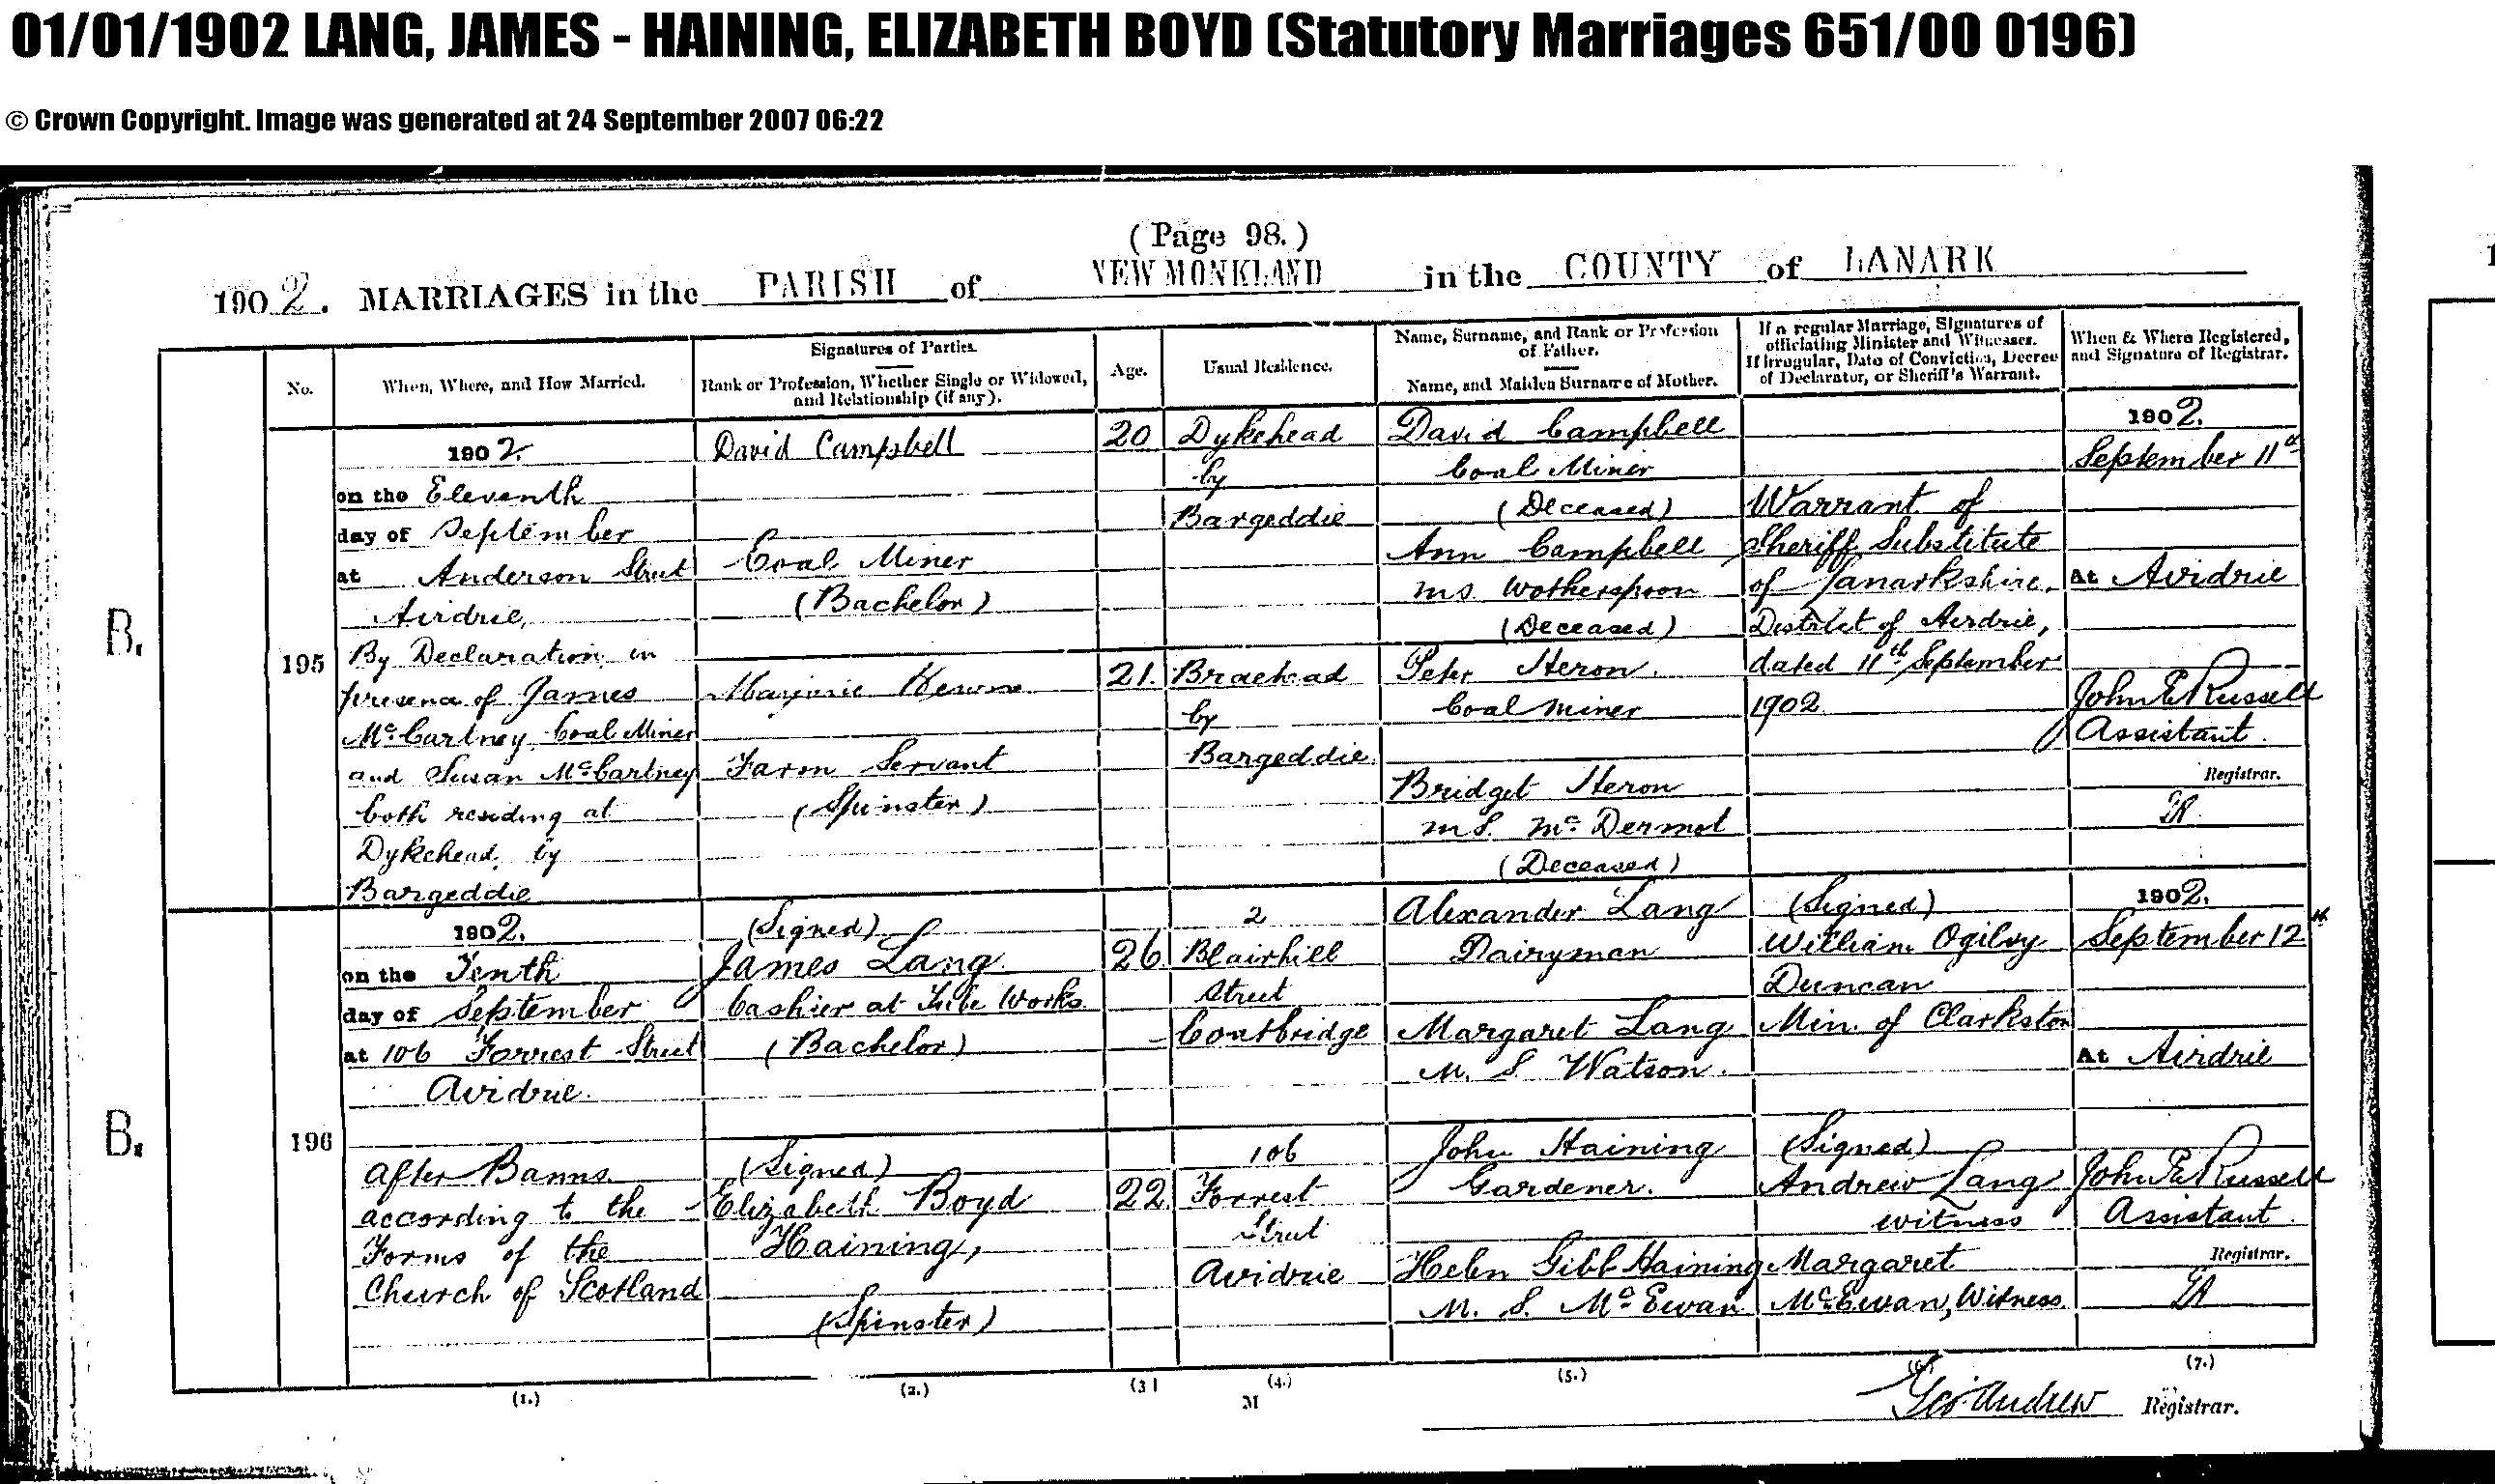 01/01/1902 LANG, JAMES - HAINING, ELIZABETH BOYD (Statutory Marriages 651/00 0196)
© Crown Copyright. Image was generated at 24 September 2007 06:22
(Page 98.)
1902. MARRIAGES in the PARISH of NEW MONKLAND in the COUNTY of LANARK
No.
When, Where, and How Married.
Signatures of Parties.
Rank or Profession, Whether Single or Widowed,
and Relationship (if any).
Age.
Usual Residence.
Name, Surname, and Rank or Profession
of Father.
Name, and Maiden Surname of Mother.
If a regular Marriage, Signatures of
officiating Minister and Witnesses.
If irregular, Date of Conviction, Decree
of Declarator, or Sheriff's Warrant.
When & Where Registered,
and Signature of Registrar.
B.
195
1902.
on the Eleventh
day of September
at Anderson Street
Airdrie,
By Declaration in
presence of James
McCartney Coal Miner
and Susan McCartney
both residing at
Dykehead, by
Bargeddie
David Campbell
Coal Miner
(Bachelor)
Marjorie
Farm Servant
(Spinster)
20
21.
Dykehead
by
Bargeddie
Braehead
by
Bargeddie.
David Campbell
Coal Miner
(Deceased)
Ann Campbell
ms. Wotherspoon
(Deceased)
Peter Heron.
Coal Miner
Bridget Heron
m S. McDermot
(Deceased)
Warrant of
Sheriff Substitute
of Lanarkshire,
District of Airdrie,
dated 11th September
1902
1902.
September 11th
At Airdrie
John E Russell
Assistant.
Registrar.
B.
196
1902.
on the Tenth
day of September
at 106 Forrest Street
Airdrie.
After Banns.
according to the
Forms of the
Church of Scotland
(Signed)
James Lang.
Cashier at Tube Works
(Bachelor)
(Signed)
Elizabeth Boyd
Haining,
(Spinster)
26.
22.
2
Blairhill
Street
Coatbridge
106
Forrest
Street
Airdrie
Alexander Lang
Dairyman
Margaret Lang
M. S. Watson.
John Haining
Gardener.
Helen Gibb Haining
M. S. McEwan
(Signed)
William Ogilvy
Duncan
Min. of Clarkston
(Signed)
Andrew Lang
witness
Margaret
McEwan, Witness
1902.
September 12th
At Airdrie
John E Russell
Assistant.
Registrar.
(1.) (2.) (3) (4.) (5.) (6.) (7.)
M
Geo. Andrew Registrar.